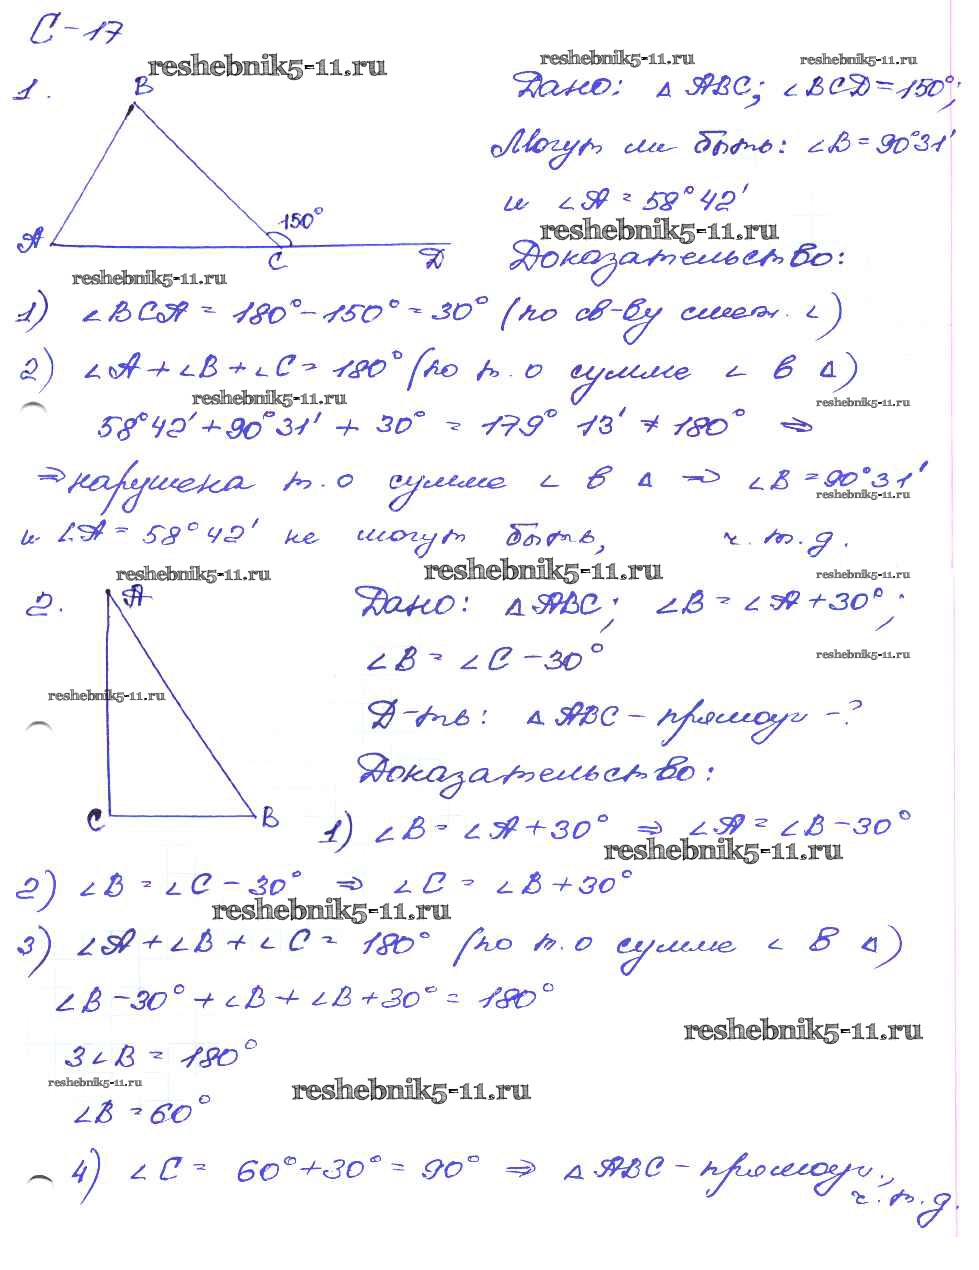 С-17
reshebnik5-11.ru reshebnik5-11.ru reshebnik5-11.ru
1. B Дано: △ABC; ∠BCD=150°;
Могут ли быть: ∠B=90°31'
и ∠A=58°42'
reshebnik5-11.ru
A 150° C D Доказательство:
reshebnik5-11.ru
1) ∠BCA = 180°-150°=30° (по св-ву смеж. ∠)
2) ∠A+∠B+∠C=180° (по т. о сумме ∠ в △)
reshebnik5-11.ru reshebnik5-11.ru
58°42'+90°31' + 30° = 179° 13' ≠ 180° ⇒
⇒ нарушена т. о сумме ∠ в △ ⇒ ∠B=90°31'
reshebnik5-11.ru
и ∠A=58°42' не могут быть, ч.т.д.
reshebnik5-11.ru reshebnik5-11.ru reshebnik5-11.ru
2. A Дано: △ABC; ∠B=∠A+30°;
∠B=∠C-30°
reshebnik5-11.ru
reshebnik5-11.ru
Д-ть: △ABC - прямоуг -?
Доказательство:
C B
1) ∠B=∠A+30° ⇒ ∠A=∠B-30°
reshebnik5-11.ru
2) ∠B=∠C-30° ⇒ ∠C=∠B+30°
reshebnik5-11.ru
3) ∠A+∠B+∠C=180° (по т. о сумме ∠ в △)
∠B-30°+∠B+∠B+30°=180°
reshebnik5-11.ru
3∠B=180°
reshebnik5-11.ru reshebnik5-11.ru
∠B=60°
4) ∠C= 60°+30°=90° ⇒ △ABC-прямоуг.,
ч.т.д.